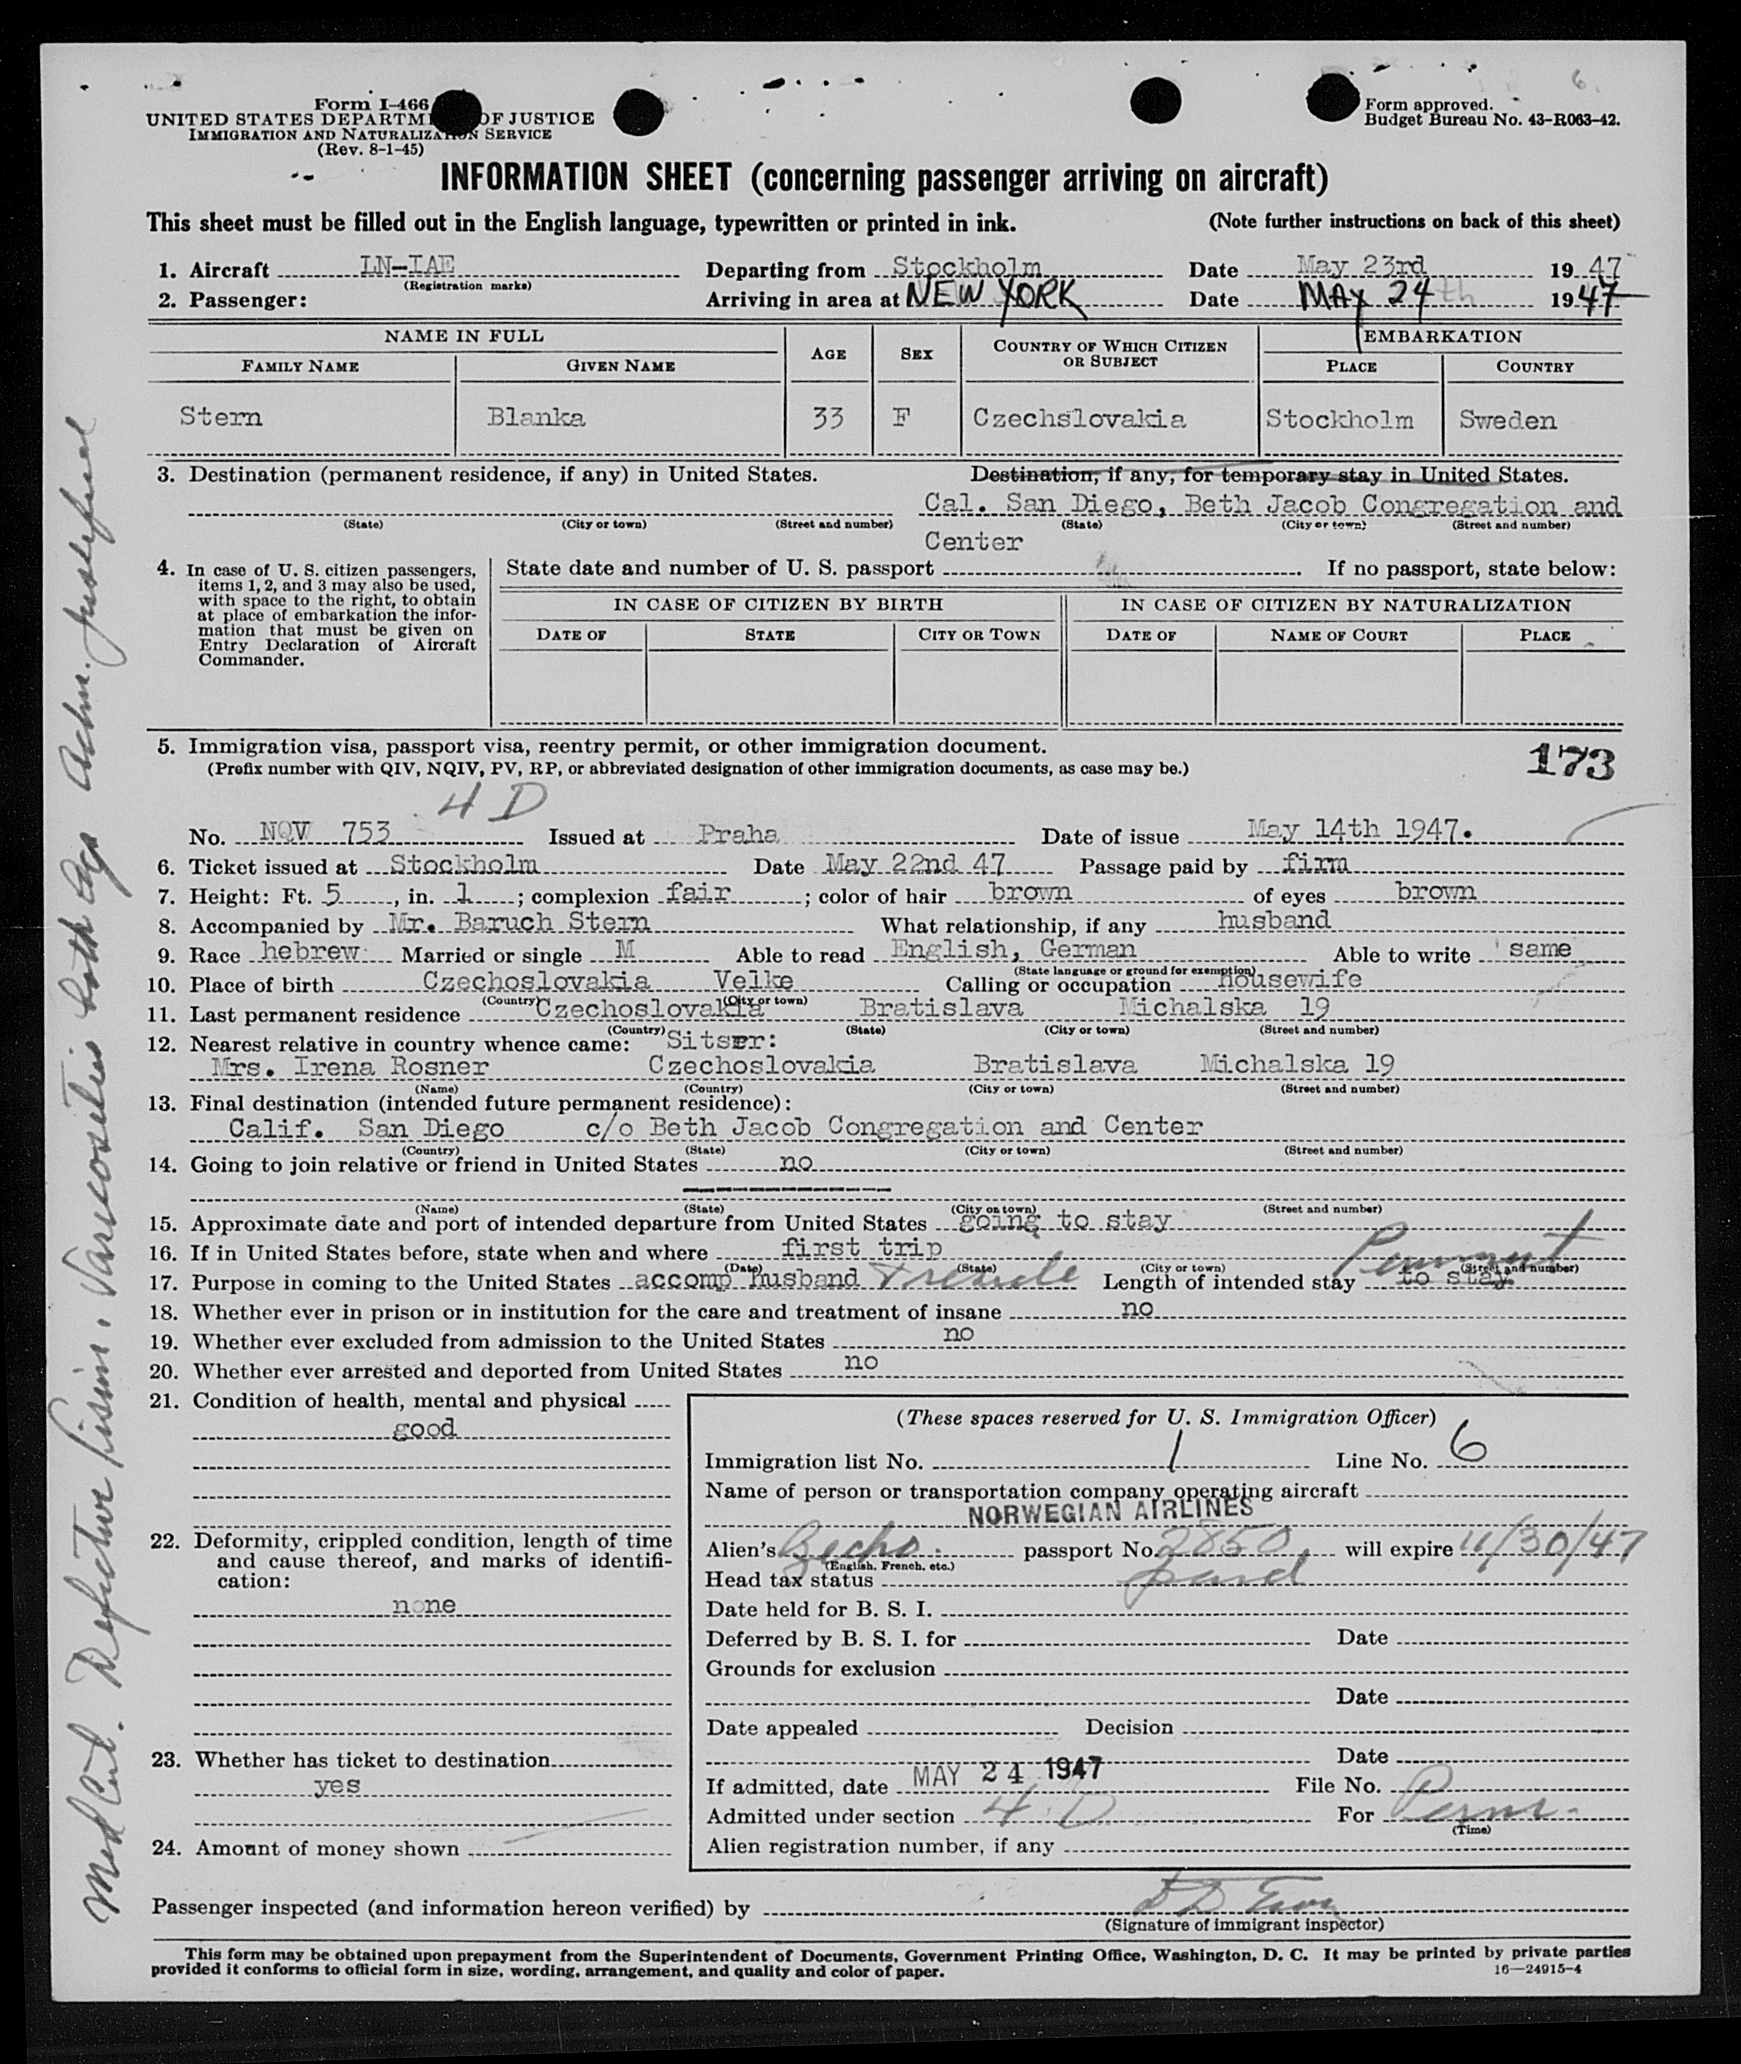 6
Form I-466
UNITED STATES DEPARTM OF JUSTICE
IMMIGRATION AND NATURALIZATION SERVICE
(Rev. 8-1-45)
Form approved.
Budget Bureau No. 43-R063-42.
INFORMATION SHEET (concerning passenger arriving on aircraft)
This sheet must be filled out in the English language, typewritten or printed in ink. (Note further instructions on back of this sheet)
1. Aircraft LN-IAE Departing from Stockholm Date May 23rd 19 47
(Registration marks)
2. Passenger: Arriving in area at NEW YORK Date MAY 24th 1947
NAME IN FULL AGE SEX COUNTRY OF WHICH CITIZEN OR SUBJECT EMBARKATION
FAMILY NAME GIVEN NAME PLACE COUNTRY
Stern Blanka 33 F Czechslovakia Stockholm Sweden
3. Destination (permanent residence, if any) in United States. Destination, if any, for temporary stay in United States.
Cal. San Diego, Beth Jacob Congregation and
(State) (City or town) (Street and number) (State) (City or town) (Street and number)
Center
4. In case of U. S. citizen passengers, items 1, 2, and 3 may also be used, with space to the right, to obtain at place of embarkation the information that must be given on Entry Declaration of Aircraft Commander.
State date and number of U. S. passport If no passport, state below:
IN CASE OF CITIZEN BY BIRTH IN CASE OF CITIZEN BY NATURALIZATION
DATE OF STATE CITY OR TOWN DATE OF NAME OF COURT PLACE
5. Immigration visa, passport visa, reentry permit, or other immigration document. 173
(Prefix number with QIV, NQIV, PV, RP, or abbreviated designation of other immigration documents, as case may be.)
4 D
No. NQV 753 Issued at Praha Date of issue May 14th 1947.
6. Ticket issued at Stockholm Date May 22nd 47 Passage paid by firm
7. Height: Ft. 5, in. 1; complexion fair; color of hair brown of eyes brown
8. Accompanied by Mr. Baruch Stern What relationship, if any husband
9. Race hebrew Married or single M Able to read English, German Able to write same
(State language or ground for exemption)
10. Place of birth Czechoslovakia Velke Calling or occupation housewife
(Country) (City or town)
11. Last permanent residence Czechoslovakia Bratislava Michalska 19
(Country) (State) (City or town) (Street and number)
12. Nearest relative in country whence came: Sitser:
Mrs. Irena Rosner Czechoslovakia Bratislava Michalska 19
(Name) (Country) (City or town) (Street and number)
13. Final destination (intended future permanent residence):
Calif. San Diego c/o Beth Jacob Congregation and Center
(Country) (State) (City or town) (Street and number)
14. Going to join relative or friend in United States no
(Name) (State) (City or town) (Street and number)
15. Approximate date and port of intended departure from United States going to stay
16. If in United States before, state when and where first trip
(Date) (State) (City or town) (Street and number)
17. Purpose in coming to the United States accomp husband Length of intended stay to stay.
18. Whether ever in prison or in institution for the care and treatment of insane no
19. Whether ever excluded from admission to the United States no
20. Whether ever arrested and deported from United States no
21. Condition of health, mental and physical
good
22. Deformity, crippled condition, length of time and cause thereof, and marks of identification:
none
23. Whether has ticket to destination
yes
24. Amount of money shown
(These spaces reserved for U. S. Immigration Officer)
Immigration list No. 1 Line No. 6
Name of person or transportation company operating aircraft
NORWEGIAN AIRLINES
Alien's passport No. 2850 will expire 11/30/47
(English, French, etc.)
Head tax status paid
Date held for B. S. I.
Deferred by B. S. I. for Date
Grounds for exclusion
Date
Date appealed Decision
Date
If admitted, date MAY 24 1947 File No.
Admitted under section 4 D For Perm.
(Time)
Alien registration number, if any
Passenger inspected (and information hereon verified) by
(Signature of immigrant inspector)
This form may be obtained upon prepayment from the Superintendent of Documents, Government Printing Office, Washington, D. C. It may be printed by private parties
provided it conforms to official form in size, wording, arrangement, and quality and color of paper. 16—24915-4
Med Cert. Defective Vision. Varicosities both legs